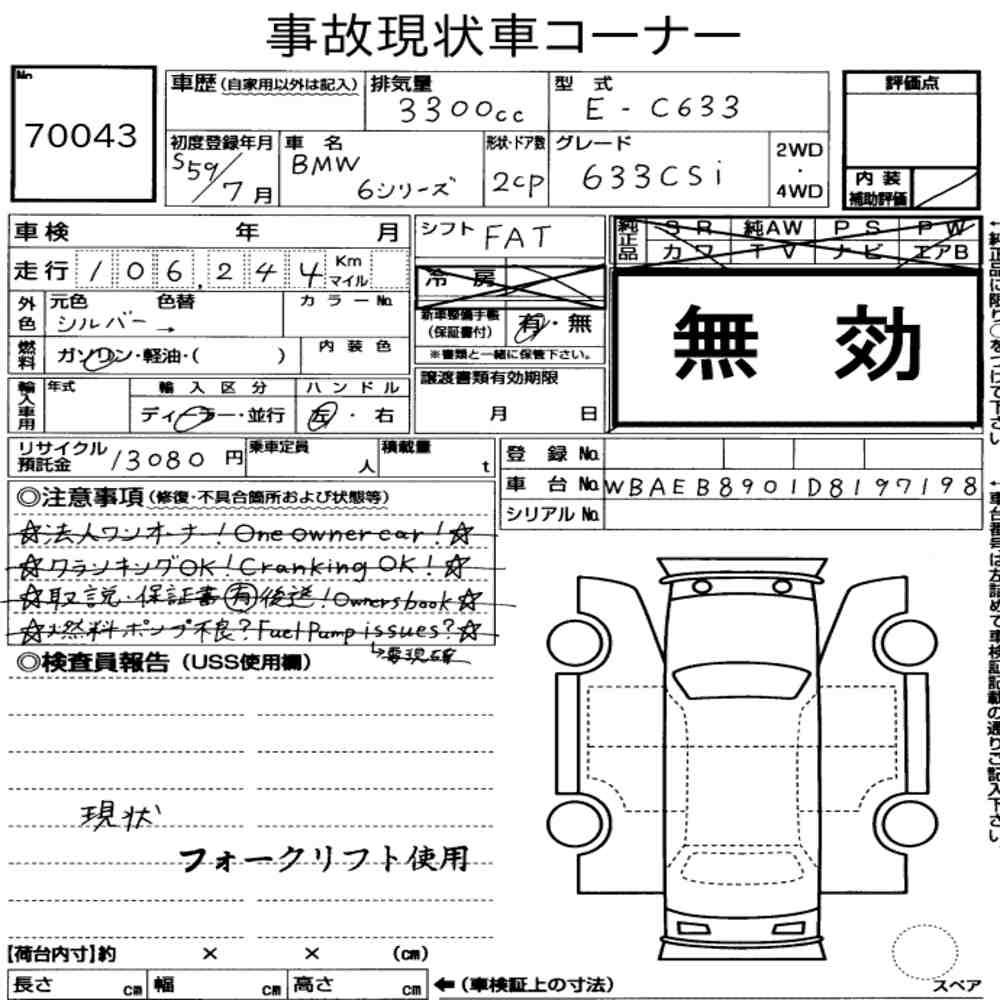 事故現状車コーナー
No. 70043
車歴 (自家用以外は記入) 排気量 3300cc 型式 E-C633 評価点
初度登録年月 S59/7月 車名 BMW 6シリーズ 形状・ドア数 2cp グレード 633CSi 2WD・4WD 内装補助評価
車検 年 月 シフト FAT 純正品 SR 純AW PS PW
カワ TV ナビ エアB
走行 106,244 Km マイル 冷房
外色 元色 シルバー→ 色替 カラーNo. 新車整備手帳(保証書付) 有・無
※書類と一緒に保管下さい。
無効
燃料 ガソリン・軽油・( ) 内装色
譲渡書類有効期限 月 日
輸入車用 年式 輸入区分 ディーラー・並行 ハンドル 左・右
リサイクル預託金 13080円 乗車定員 人 積載量 t
登録No.
車台No. WBAEB8901D8197198
シリアルNo.
◎注意事項(修復・不具合箇所および状態等)
☆法人ワンオーナー!One owner car!☆
☆クランキングOK!Cranking OK!☆
☆取説・保証書有後送!Owners book☆
☆燃料ポンプ不良?Fuel Pump issues?☆
↳要現確
◎検査員報告(USS使用欄)
現状
フォークリフト使用
【荷台内寸】約 × × (cm)
長さ cm 幅 cm 高さ cm ←(車検証上の寸法)
スペア
←純正品に限り○をつけて下さい
←車台番号は左詰めで車検証記載の通りご記入下さい。